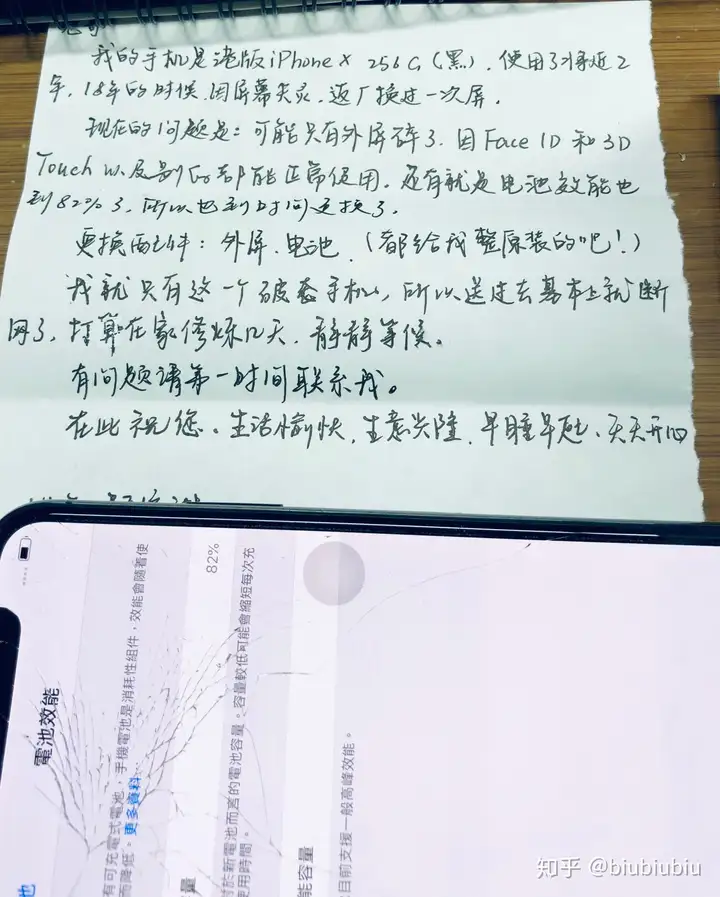 我的手机是港版iPhone X 256G(黑). 使用了将近2
年, 18年的时候, 因屏幕失灵, 返厂换过一次屏.
现在的问题是: 可能只有外屏碎了. 因Face ID 和3D
Touch 以及别的都能正常使用. 还有就是电池效能也
到82%了, 所以也到时间更换了.
更换配件: 外屏、电池. (都给我整原装的吧!)
我就只有这一个破壳手机, 所以送过去基本上就断
网了, 打算在家修炼几天, 静静等候。
有问题请第一时间联系我。
在此祝您、生活愉快, 生意兴隆, 早睡早起、天天开心
電池效能
有可充電式電池,手機電池是消耗性組件,效能會隨著使
而降低。更多資料⋯
量 82%
對於新電池而言的電池容量。容量較低可能會縮短每次充
使用時間。
能容量
目前支援一般高峰效能。
知乎 @biubiubiu